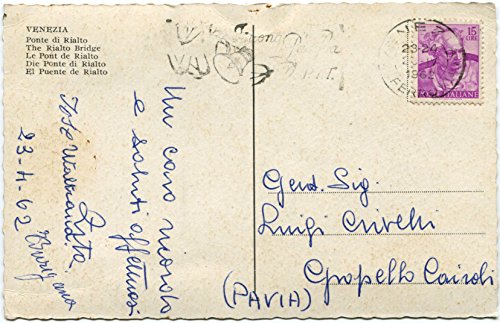 VENEZIA
Ponte di Rialto
The Rialto Bridge
Le Pont de Rialto
Die Ponte di Rialto
El Puente de Rialto
15
LIRE
ITALIANE
23-24
FERR
Un caro ricordo
e saluti affettuosi
Zita
23-4-62
Gent. Sig.
Luigi Crivelli
Gropello Cairoli
(PAVIA)